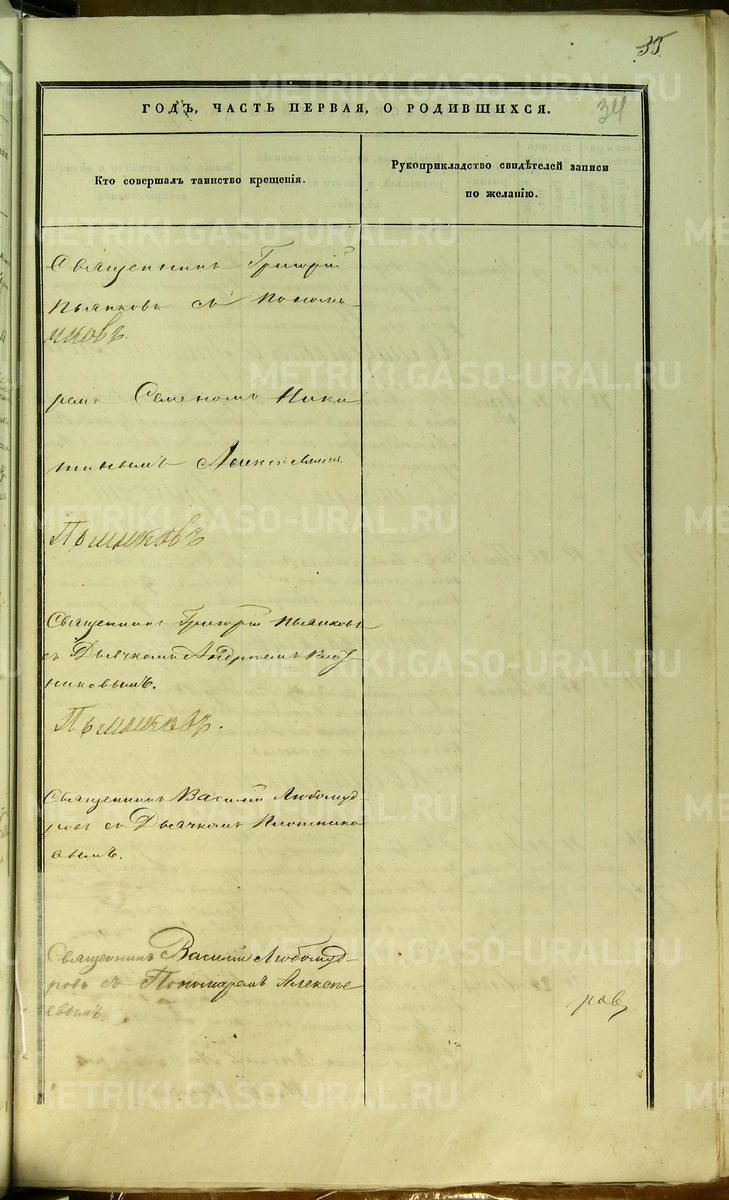 35
34
ГОДЪ, ЧАСТЬ ПЕРВАЯ, О РОДИВШИХСЯ.
Кто совершалъ таинство крещенія.
Рукоприкладство свидѣтелей записи
по желанію.
Священникъ Григорій
Пьянковъ съ Понома-
ремъ Семеномъ Ники
тинымъ Алексѣевымъ
Священникъ Григорій Пьянковъ
съ Дьячкомъ Андреемъ
никовымъ.
Священникъ Василій Любомуд
ровъ съ Дьячкомъ Плотнико
вымъ.
Священникъ Василій Любомуд-
ровъ съ Пономаремъ Алексѣ
евымъ
ров
METRIKI.GASO-URAL.RU